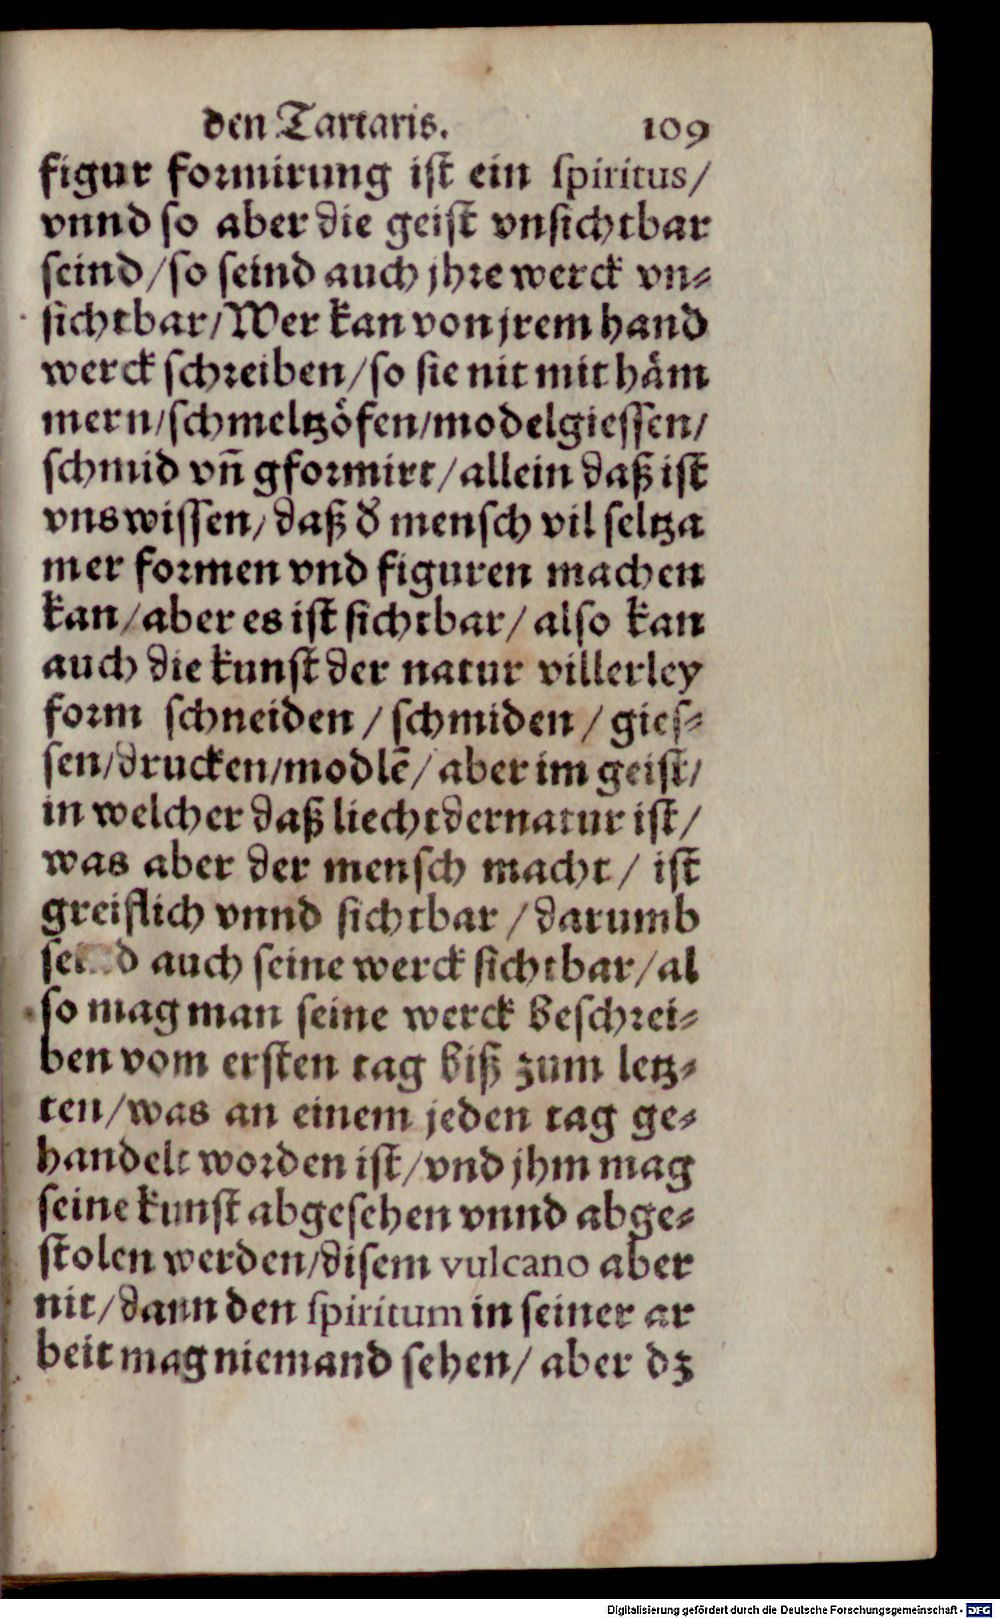 den Tartaris. 109
figur formirung ist ein spiritus/
vnnd so aber die geist vnsichtbar
seind/so seind auch jhre werck vn⸗
sichtbar/Wer kan von jrem hand
werck schreiben/so sie nit mit häm
mern/schmeltzöfen/modelgiessen/
schmid vn̄ gformirt/allein daß ist
vns wissen/daß d̕ mensch vil seltza
mer formen vnd figuren machen
kan/aber es ist sichtbar/also kan
auch die kunst der natur villerley
form schneiden/schmiden/gies⸗
sen/drucken/modlē/aber im geist/
in welcher daß liecht der natur ist/
was aber der mensch macht/ist
greiflich vnnd sichtbar/darumb
auch seine werck sichtbar/al
so mag man seine werck beschrei⸗
ben vom ersten tag biß zum letz⸗
ten/was an einem jeden tag ge⸗
handelt worden ist/vnd jhm mag
seine kunst abgesehen vnnd abge⸗
stolen werden/disem vulcano aber
nit/dann den spiritum in seiner ar
beit mag niemand sehen/aber dz
Digitalisierung gefördert durch die Deutsche Forschungsgemeinschaft - DFG